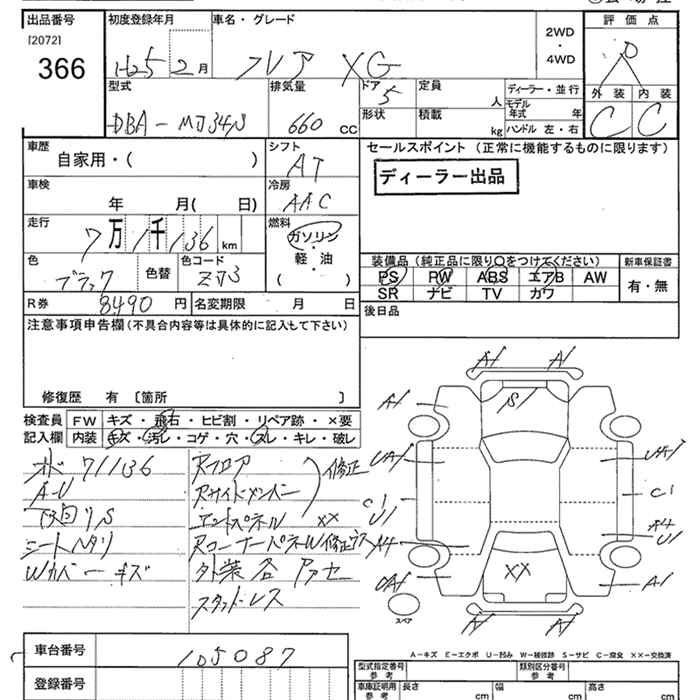 出品番号 初度登録年月 車名・グレード 評価点
[2072]
366
H25 2月 フレア XG 2WD・4WD R
型式 排気量 ドア 定員 ディーラー・並行 外装 内装
DBA-MJ34S 660 CC 5 人 モデル年式 年 C C
形状 積載 kg ハンドル 左・右
車歴 シフト セールスポイント (正常に機能するものに限ります)
自家用・( ) AT ディーラー出品
車検 冷房
年 月( 日) AAC
走行 燃料
7万1千136 km ガソリン
軽・油
( )
色 色替 色コード 装備品 (純正品に限り○をつけてください) 新車保証書
ブラック ZJ3 PS PW ABS エアB AW 有・無
SR ナビ TV カワ
R券 8,490 円 名変期限 月 日 後日品
注意事項申告欄 (不具合内容等は具体的に記入して下さい)
修復歴 有 〔箇所 〕
検査員 FW キズ・飛石・ヒビ割・リペア跡・×要
記入欄 内装 キズ・汚レ・コゲ・穴・スレ・キレ・破レ
71136
A-U
下回りS
シートヘタリ
Wカバーキズ
Rフロア
Rサイドメンバー 修正
エンドパネル ××
Rコーナーパネル修正
外装
A1 A1
A1 S1
UA1 UA1
C1 U1 C1
A4 A4 U1
××
UA1 A1
A1 A1
スペア
A-キズ E-エクボ U-凹み W-補修跡 S-サビ C-腐食 ××-交換済
車台番号 105087
登録番号
型式指定番号 参考 類別区分番号 参考
車庫証明用 参考 長さ cm 幅 cm 高さ cm